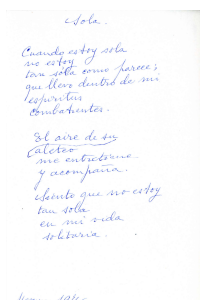 Sola.
Cuando estoy sola
no estoy
tan sola como parece;
que llevo dentro de mi
espiritus
combatientes.
El aire de su
aleteo
me entretiene
y acompaña.
siento que no estoy
tan sola
en mi vida
solitaria.